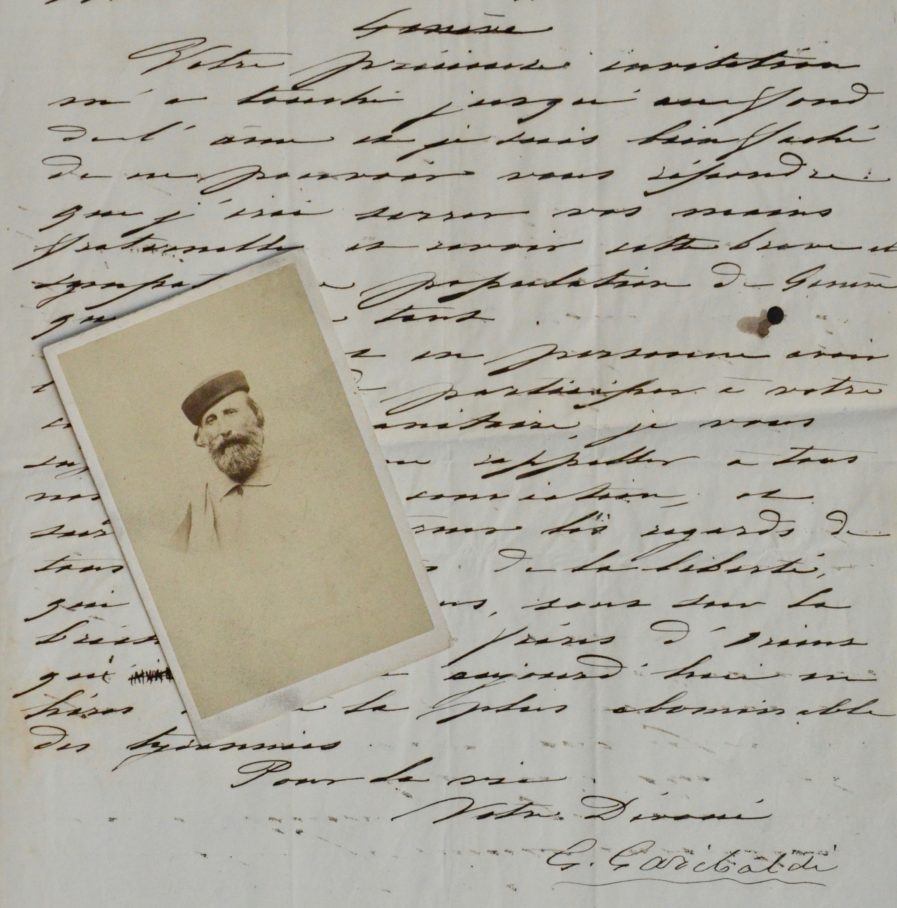 Genève
Votre précieuse invitation
m'a touché jusqu'au fond
de l'âme et je suis bien faché
de ne pouvoir vous répondre:
que j'irai serrer vos mains
fraternelles et revoir cette brave et
sympat population de Genève
que tant
en personne avoir
de participer à votre
anitaire, je vous
appeller à tous
nos conviction, et
les regards de
tous de la liberté,
qui sont sur la
frères d'Orient
qui aujourd'hui en
héros la plus abominable
des tyrannies
Pour la vie
Votre Dévoué
G. Garibaldi